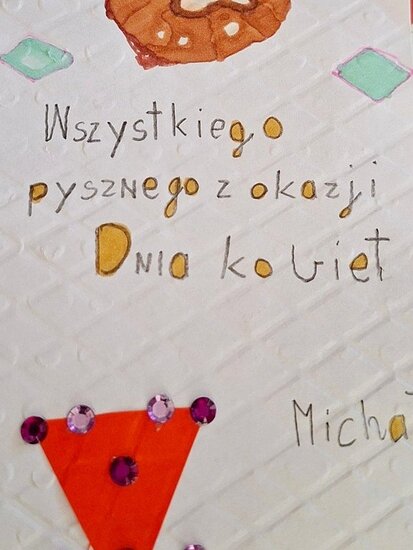 Wszystkiego
pysznego z okazji
Dnia kobiet
Micha